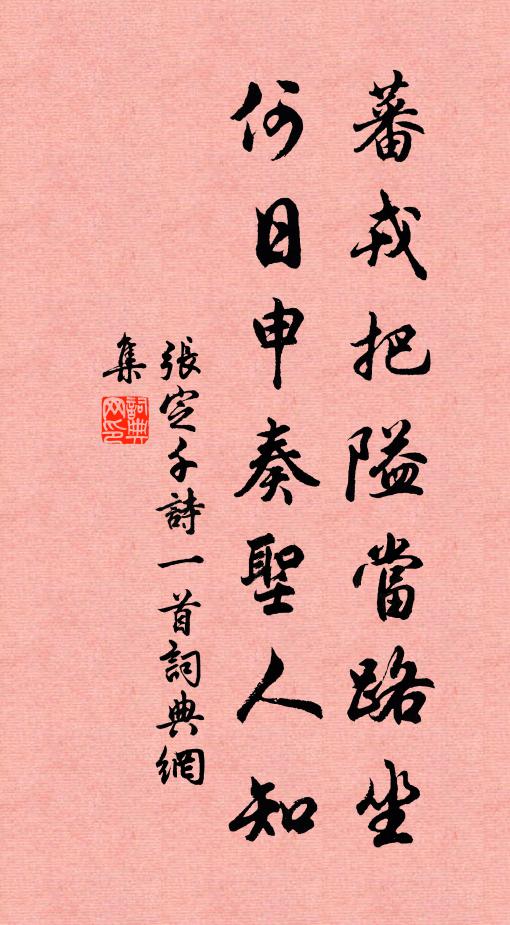 蕃戎把隘當路坐
何日申奏聖人知
張定千詩一首詞典網
集
詞典
网印